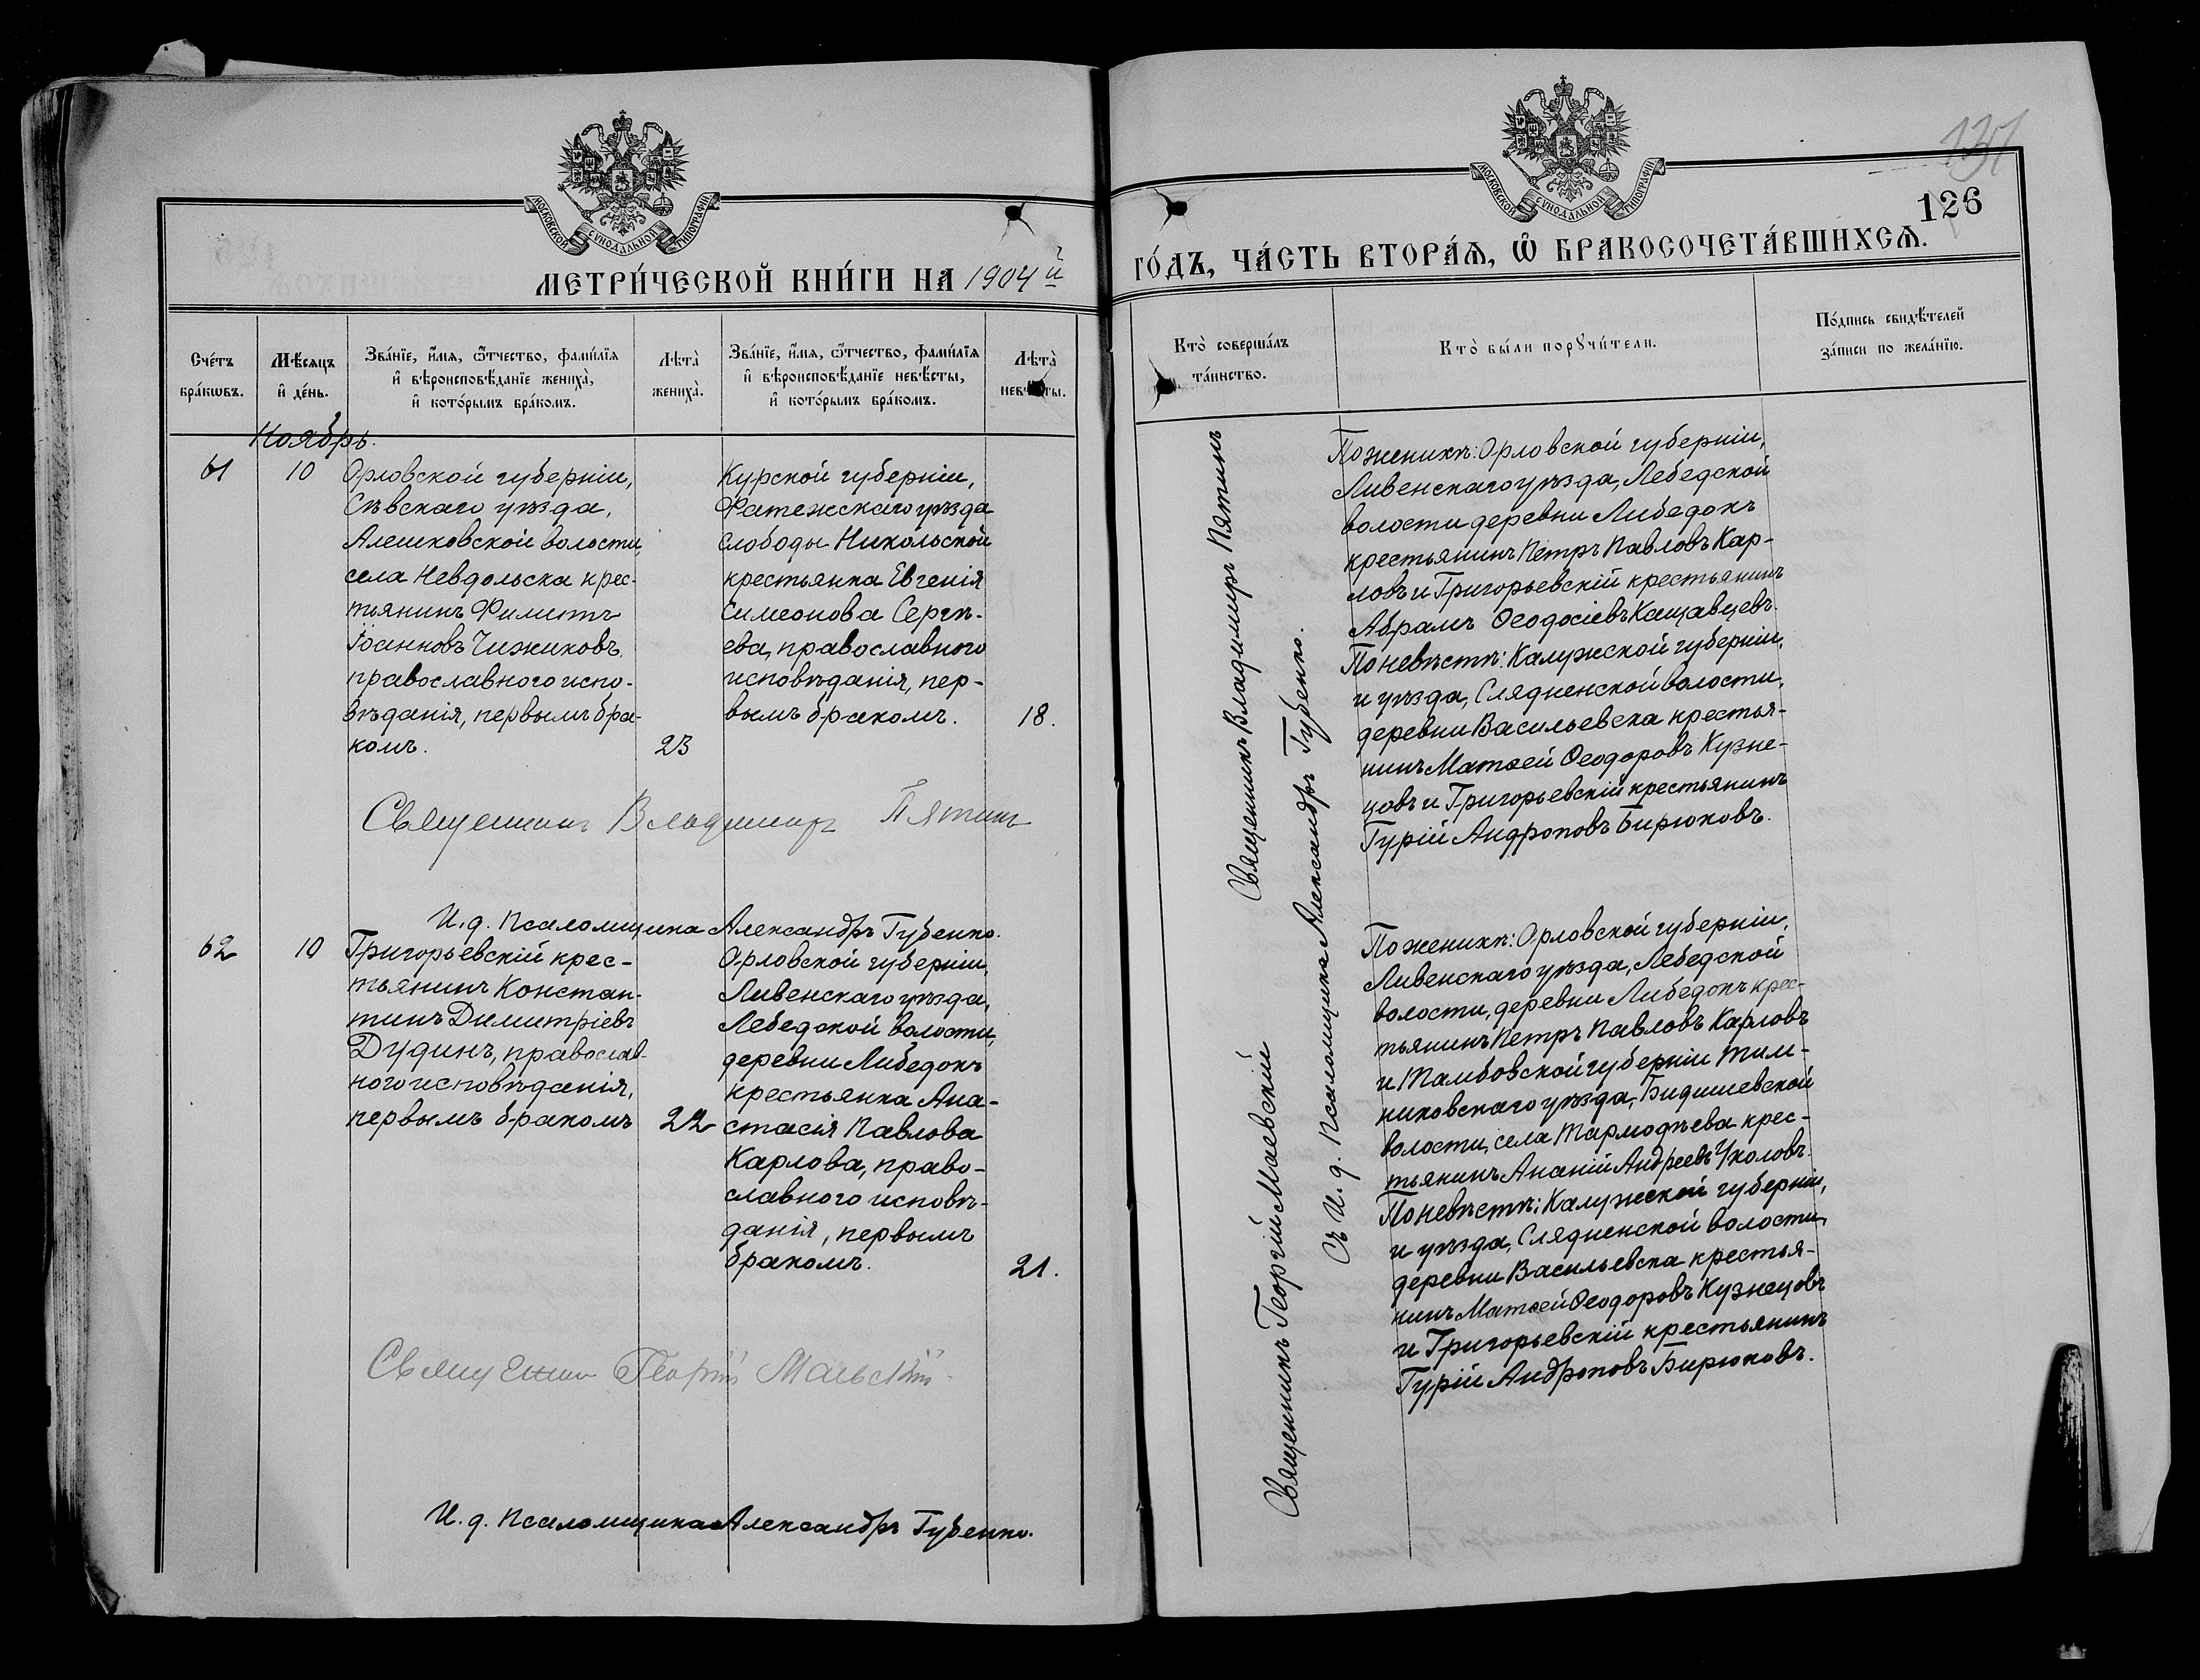 МОСКОВСКОЙ СѴНОДАЛЬНОЙ ТИПОГРАФІИ
МЕТРИ́ЧЕСКОЙ КНИ́ГИ НА 1904й
Сче́тъ бра́кѡвъ.
Мѣ́сяцъ и҆ де́нь.
Зва́нїе, и҆́мя, ѻ҆́тчество, фами́лїя и҆ вѣроисповѣ́данїе жениха̀, и҆ кото́рымъ бра́комъ.
Лѣта̀ жениха̀.
Зва́нїе, и҆́мя, ѻ҆́тчество, фами́лїя и҆ вѣроисповѣ́данїе невѣ́сты, и҆ кото́рымъ бра́комъ.
Лѣта̀ невѣ́сты.
Ноябрь.
61
10
Орловской губерніи,
Сѣвскаго уѣзда,
Алешковской волости,
села Невдольска крес-
тьянинъ Филиппъ
Іоанновъ Чижиковъ,
православного испо-
вѣданія, первымъ бра-
комъ.
23
Курской губерніи,
Фатежскаго уѣзда
слободы Никольской
крестьянка Евгенія
Симеонова Сергѣ-
ева, православного
исповѣданія, пер-
вымъ бракомъ.
18.
Священникъ Владимиръ Пятинъ
И. д. псаломщика Александръ Губенко.
62
10
Григорьевскій крес-
тьянинъ Констан-
тинъ Димитріевъ
Дудинъ, православ-
ного исповѣданія,
первымъ бракомъ
22
Орловской губерніи,
Ливенскаго уѣзда,
Лебедской волости,
деревни Либедокъ
крестьянка Ана-
стасія Павлова
Карлова, право-
славного исповѣ-
данія, первымъ
бракомъ.
21.
Священникъ Георгій Маевскій
И. д. псаломщика Александръ Губенко.
131
126
МОСКОВСКОЙ СѴНОДАЛЬНОЙ ТИПОГРАФІИ
ГО́ДЪ, ЧА́СТЬ ВТОРА́Я, Ѽ БРАКОСОЧЕТА́ВШИХСЯ.
Кто̀ соверша́лъ та́инство.
Кто̀ бы́ли порꙋчи́тели.
По́дпись свидѣ́телей за́писи по жела́нїю.
Священникъ Владимиръ Пятинъ
Священникъ Георгій Маевскій
Съ И. д. псаломщика Александръ Губенко.
По женихѣ: Орловской губерніи,
Ливенскаго уѣзда, Лебедской
волости деревни Либедокъ
крестьянинъ Петръ Павловъ Кар-
ловъ и Григорьевскій крестьянинъ
Абрамъ Ѳеодосіевъ Кащавцевъ.
По невѣстѣ: Калужской губерніи,
и уѣзда, Слядненской волости,
деревни Васильевска крестья-
нинъ Матѳей Ѳеодоровъ Кузне-
цовъ и Григорьевскій крестьянинъ
Гурій Андроповъ Бирюковъ.
По женихѣ: Орловской губерніи,
Ливенскаго уѣзда, Лебедской
волости, деревни Либедокъ крес-
тьянинъ Петръ Павловъ Карловъ
и Тамбовской губерніи Тем-
никовскаго уѣзда, Бидишевской
волости, села Тармодѣева крес-
тьянинъ Ананій Андреевъ Уколовъ.
По невѣстѣ: Калужской губерніи,
и уѣзда, Слядненской волости,
деревни Васильевска крестья-
нинъ Матѳей Ѳеодоровъ Кузнецовъ
и Григорьевскій крестьянинъ
Гурій Андроповъ Бирюковъ.